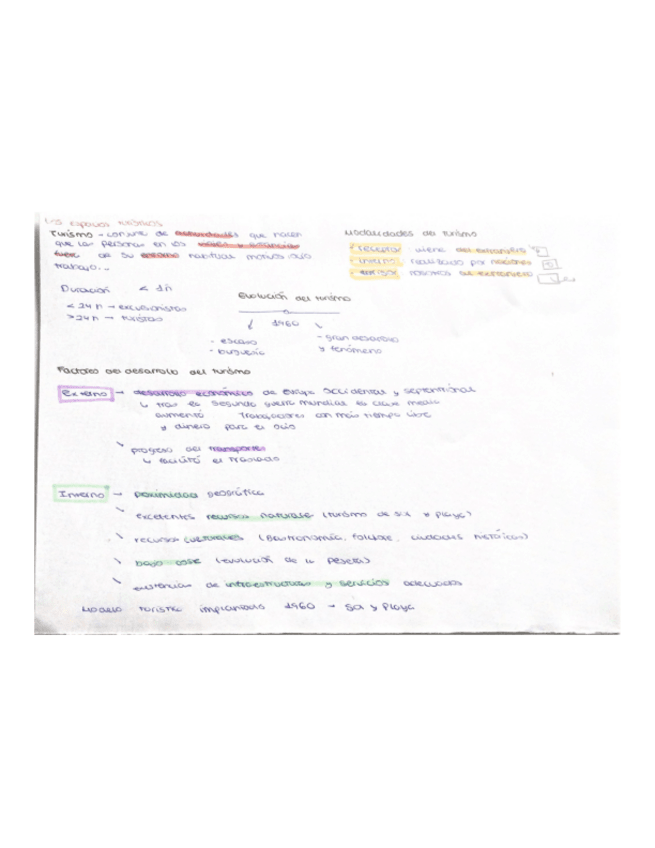 Espacios turísticos
Turismo → conjunto de actividades que hacen
que las personas en los viajes y estancia
fuera de su entorno habitual motivos ocio
trabajo...
Modalidades de turismo
- receptor viene del extranjero
- interno realizado por
- emisor nosotros al extranjero
Duración
< 24 h → excursionistas
> 24 h → turistas
Evolución del turismo
1960
- escaso
- burguesía
- gran desarrollo
y fenómeno
Factores de desarrollo del turismo
Externo → desarrollo económico de Europa Occidental y septentrional
↳ tras la segunda guerra mundial la clase media
aumentó Trabajadores con más tiempo libre
y dinero para el ocio
progreso del transporte
↳ facilitó el traslado
Interno → proximidad geográfica
excelentes recursos naturales (turismo de sol y playa)
recursos culturales (Gastronomía, folclore, ciudades históricas)
bajo coste (evolución de la peseta)
existencia de infraestructuras y servicios adecuados
Modelo turístico implantado 1960 → Sol y Playa